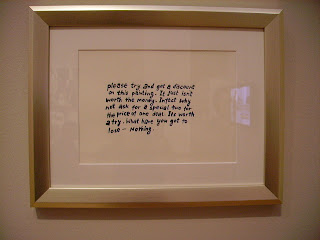 please try and get a discount
on this painting. It just isn't
worth the money. Infact why
not ask for a special two for
the price of one deal. Its worth
a try. What have you got to
lose - Nothing